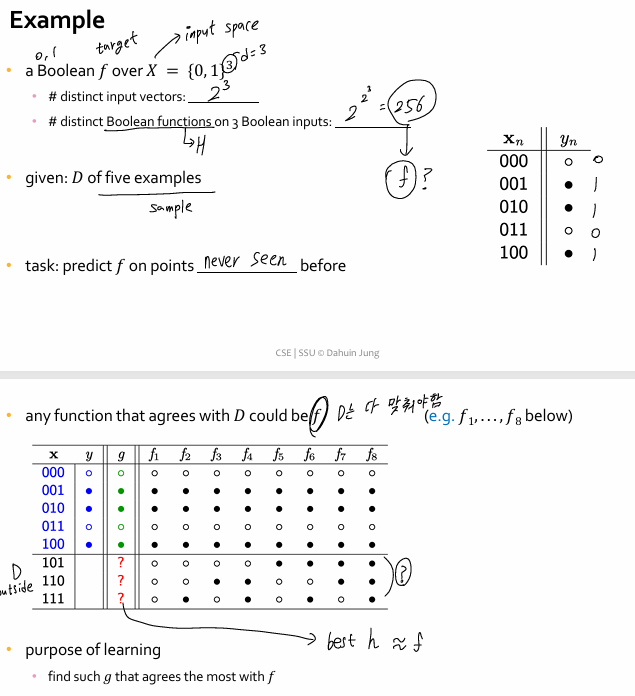 Example
0, 1 target → input space
• a Boolean f over X = {0, 1}³ d=3
• # distinct input vectors: 2³
• # distinct Boolean functions on 3 Boolean inputs: 2^2^3 = 256
↳ H
f ?
• given: D of five examples
sample
• task: predict f on points never seen before
xₙ yₙ
000 ○ 0
001 ● 1
010 ● 1
011 ○ 0
100 ● 1
CSE | SSU © Dahuin Jung
• any function that agrees with D could be f D는 다 맞춰야함 (e.g. f₁,…,f₈ below)
x y g f₁ f₂ f₃ f₄ f₅ f₆ f₇ f₈
000 ○ ○ ○ ○ ○ ○ ○ ○ ○ ○
001 ● ● ● ● ● ● ● ● ● ●
010 ● ● ● ● ● ● ● ● ● ●
011 ○ ○ ○ ○ ○ ○ ○ ○ ○ ○
100 ● ● ● ● ● ● ● ● ● ●
101 ? ○ ○ ○ ○ ● ● ● ●
110 ? ○ ○ ● ● ○ ○ ● ● ?
111 ? ○ ● ○ ● ○ ● ○ ●
D
outside
best h ≈ f
• purpose of learning
• find such g that agrees the most with f